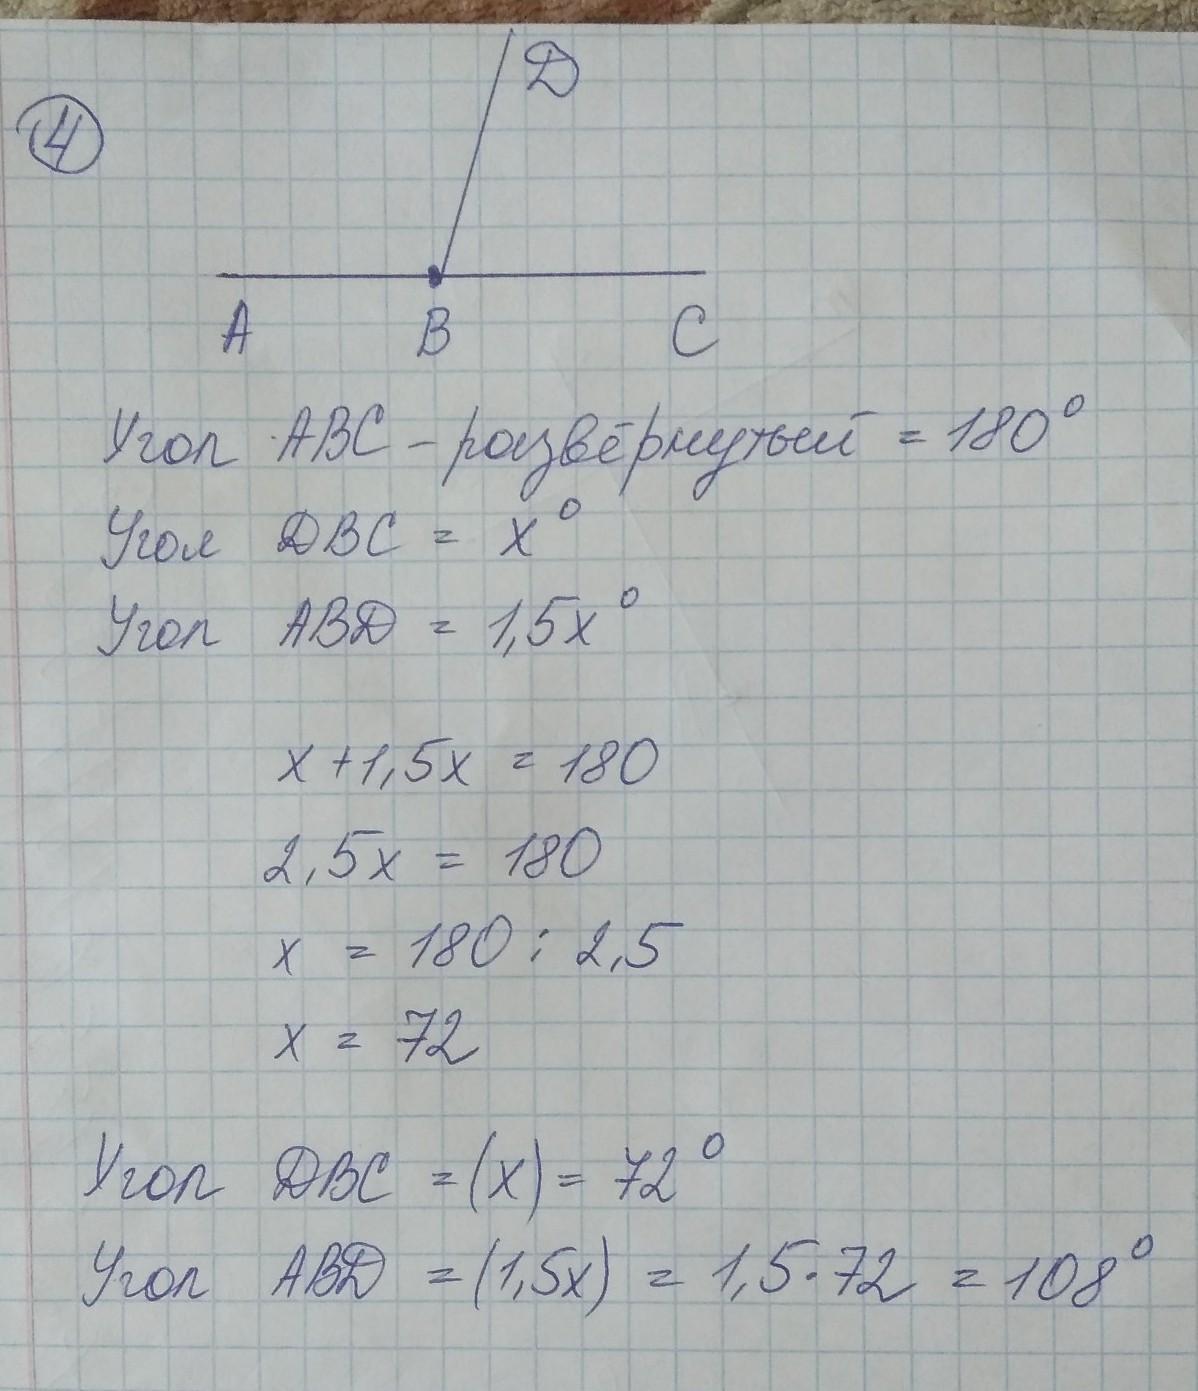 D
4
A B C
Угол ABC - развёрнутый = 180°
Угол DBC = x°
Угол ABD = 1,5x°
x + 1,5x = 180
2,5x = 180
x = 180 : 2,5
x = 72
Угол DBC = (x) = 72°
Угол ABD = (1,5x) = 1,5 · 72 = 108°